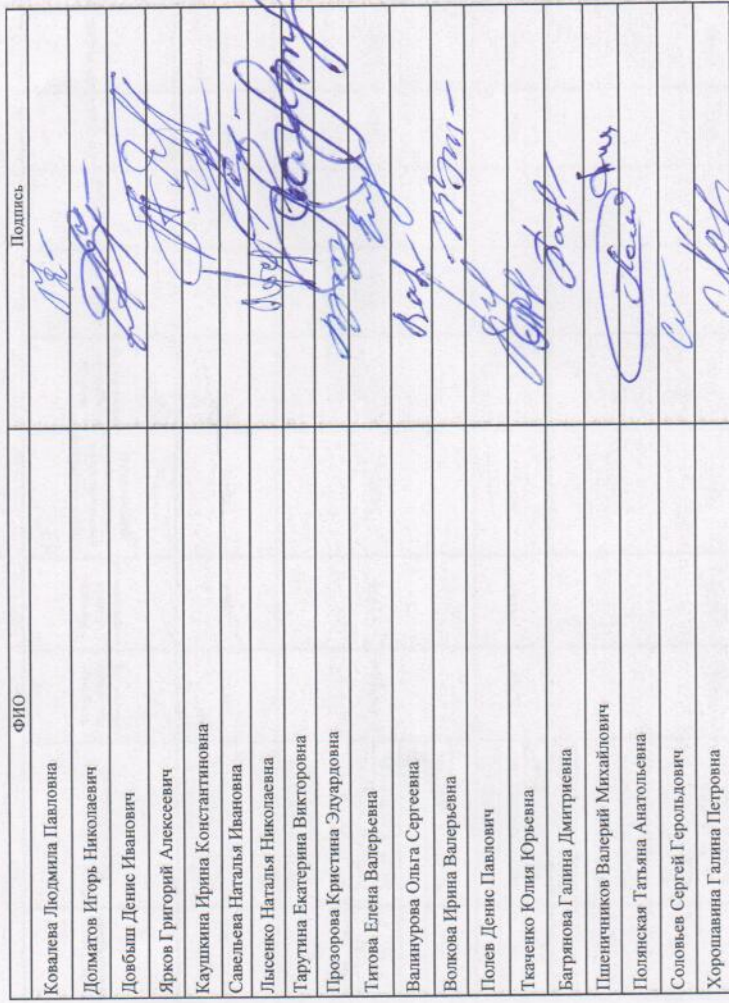 ФИО Подпись
Ковалева Людмила Павловна
Долматов Игорь Николаевич
Довбыш Денис Иванович
Ярков Григорий Алексеевич
Каушкина Ирина Константиновна
Савельева Наталья Ивановна
Лысенко Наталья Николаевна
Тарутина Екатерина Викторовна
Прозорова Кристина Эдуардовна
Титова Елена Валерьевна
Валинурова Ольга Сергеевна
Волкова Ирина Валерьевна
Полев Денис Павлович
Ткаченко Юлия Юрьевна
Багрянова Галина Дмитриевна
Пшеничников Валерий Михайлович
Полянская Татьяна Анатольевна
Соловьев Сергей Герольдович
Хорошавина Галина Петровна